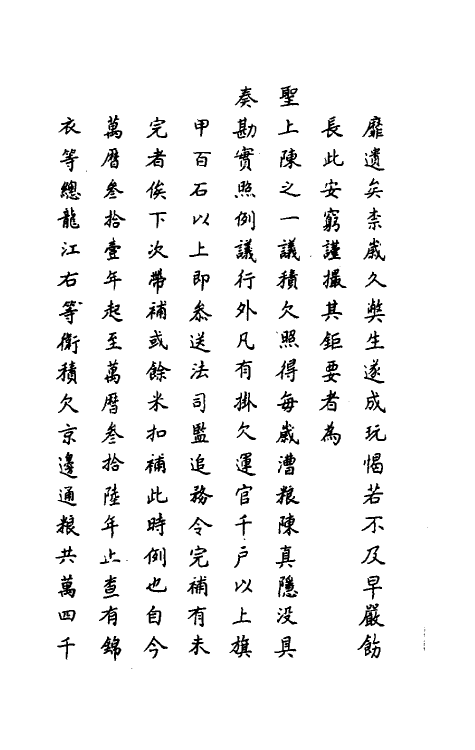 靡遺矣柰歲久獘生遂成玩愒若不及早嚴飭
長此安窮謹撮其鉅要者為
聖上陳之一議積欠照得每歲漕粮陳真隱没具
奏勘實照例議行外凡有掛欠運官千户以上旗
甲百石以上即叅送法司監追務令完補有未
完者俟下次帶補或餘米扣補此時例也自今
萬曆叁拾壹年起至萬曆叁拾陸年止查有錦
衣等總龍江右等衞積欠京邊通粮共萬四千